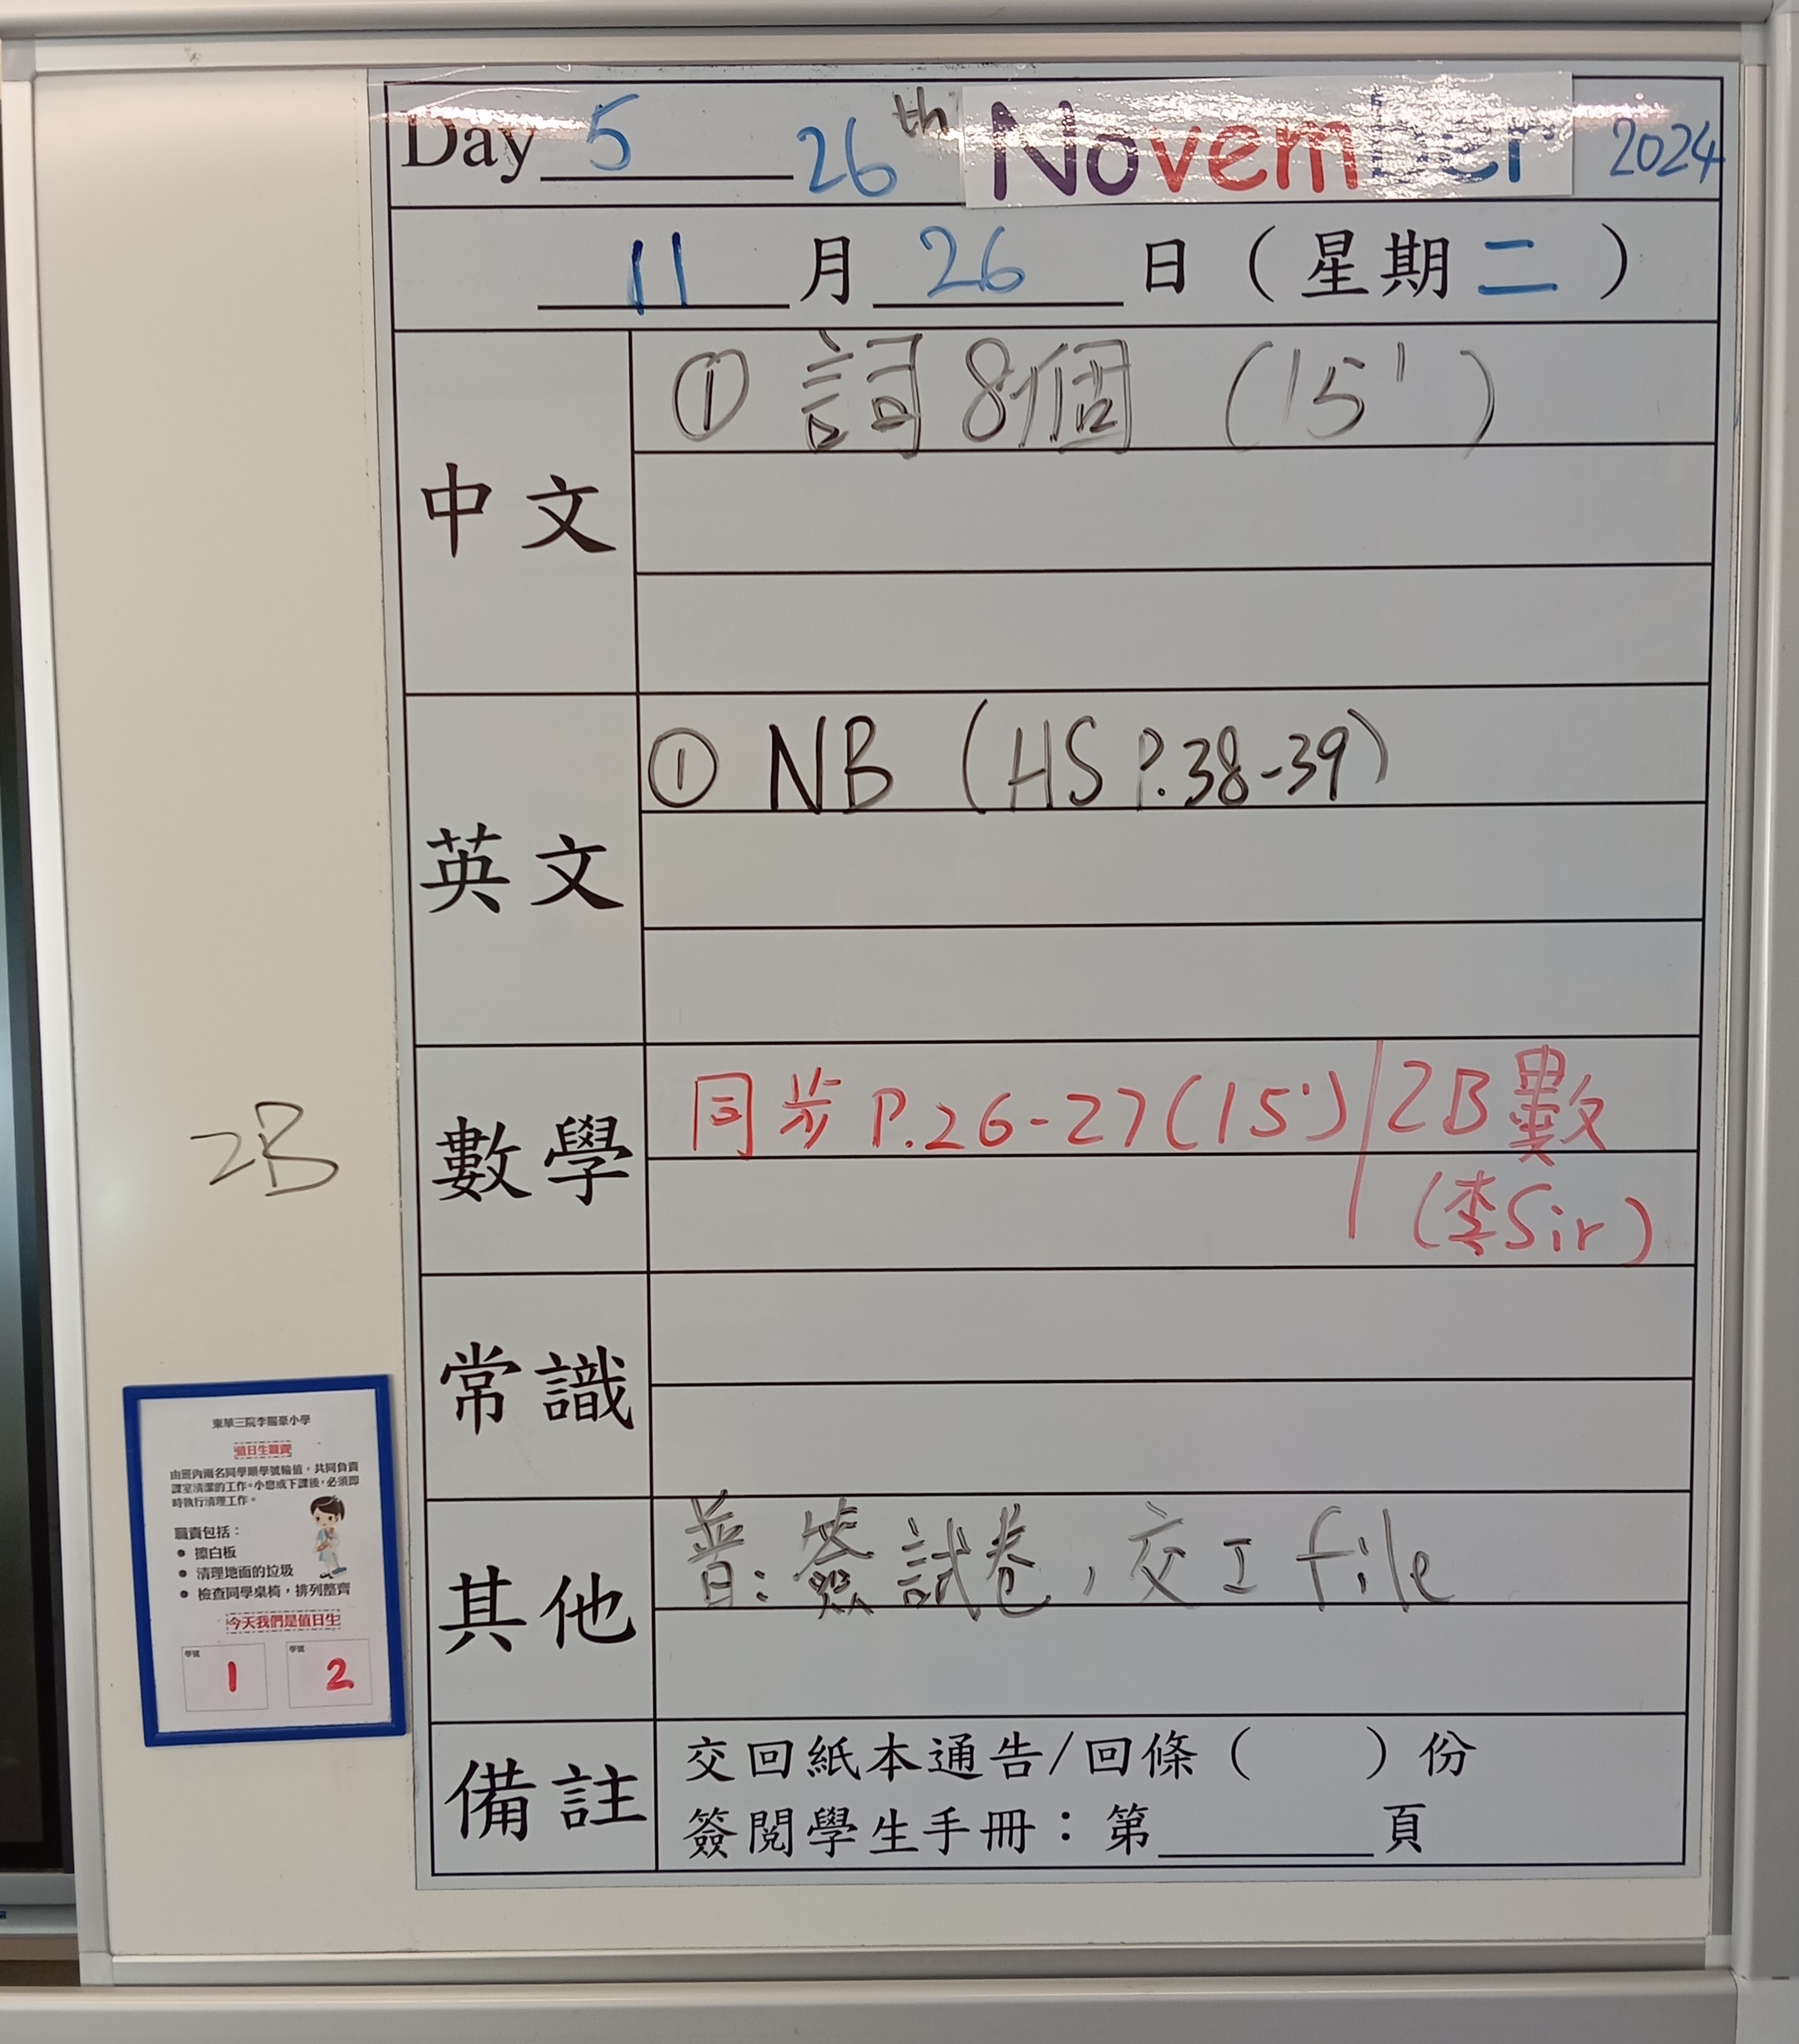 Day 5 26th November 2024
11月26日（星期二）
中文
① 詞8個 (15')
英文
① NB (HS P.38-39)
數學
同步 P.26-27(15') / 2B 數
(李Sir)
2B
常識
其他
普：簽試卷，交工file
備註
交回紙本通告/回條（ ）份
簽閱學生手冊：第______頁
東華三院李賜豪小學
值日生職責
由班內兩名同學順學號輪值，共同負責
課室清潔的工作。小息或下課後，必須即
時執行清理工作。
職責包括：
● 擦白板
● 清理地面的垃圾
● 檢查同學桌椅，排列整齊
今天我們是值日生
學號 學號
1 2